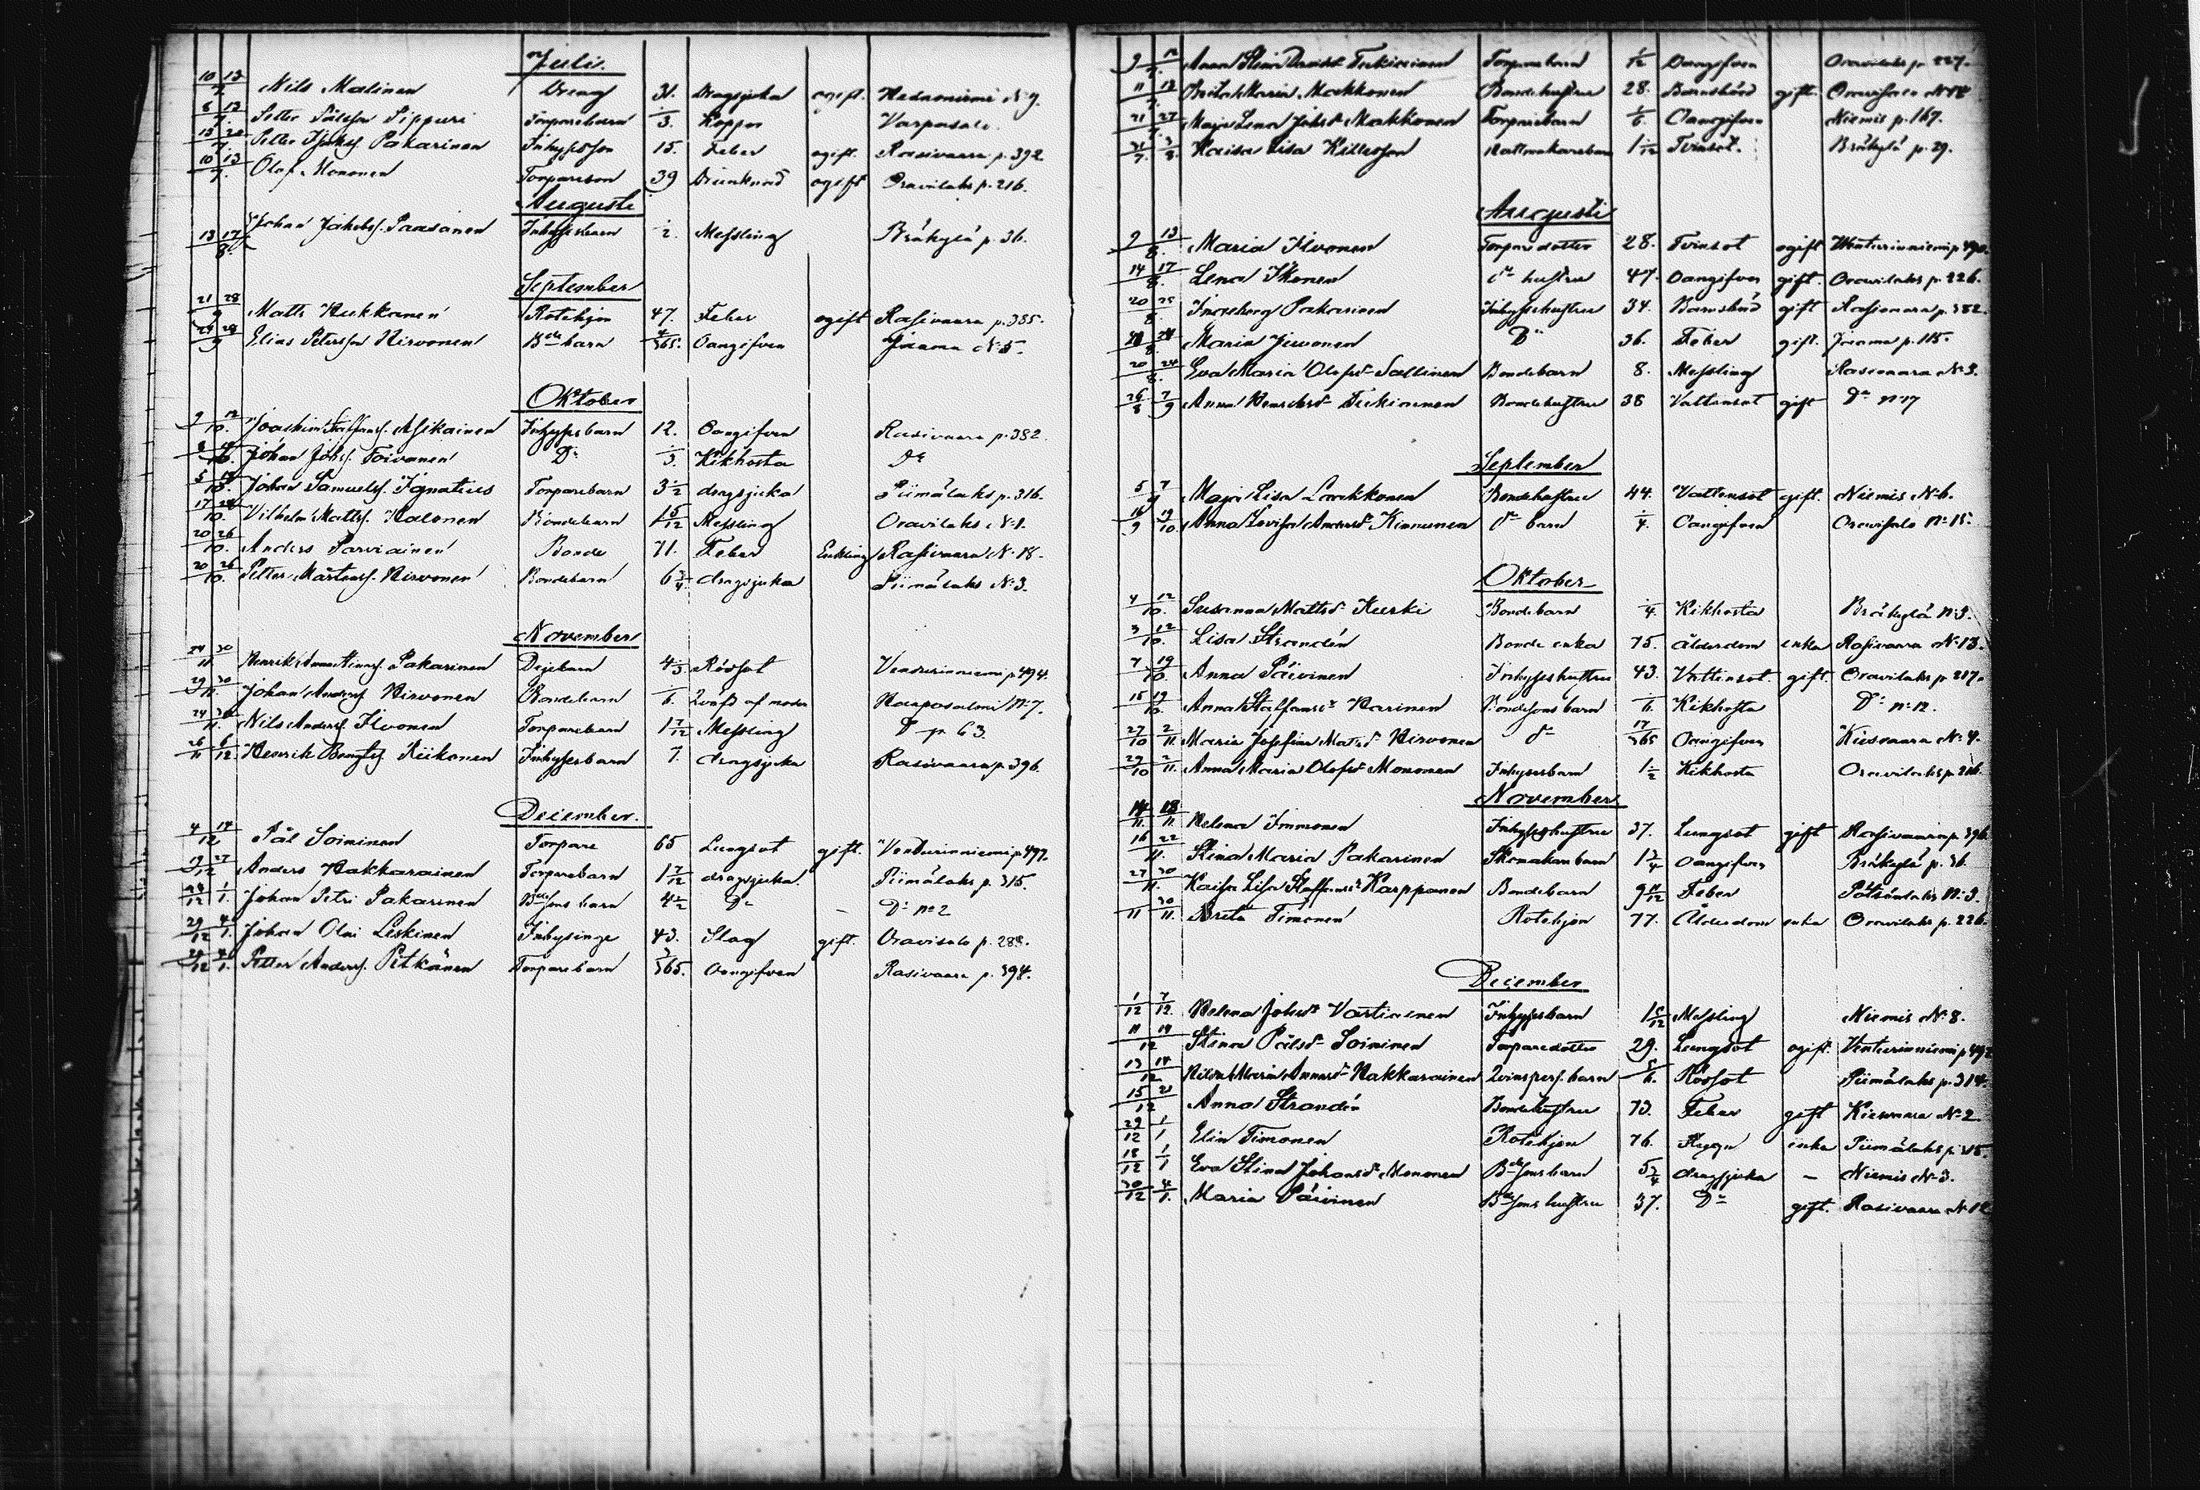 Juli.
10/7 13/7 Nils Malinen Dreng 31. Dragsjuka ogift. N:o 9.
8/7 12/7 Petter Pålsson Sippuri Torparebarn 1/3. Koppor Varpasalo.
15/7 20/7 Petter Pakarinen Inhysesson 15. Feber ogift. Rasivaara p. 392
10/7 13/7 Olof Mononen Torpareson 39 Drunknad ogift Oravilaks p. 216.
Augusti
13/8 17/8 Johan Jakobss. Paasonen Inhysesbarn 1/2. Messling Bråkylä p. 36.
September
21/9 28/9 Matts Kukkonen Rotehjon 47. Feber ogift Rasivaara p. 385.
24/9 28/9 Elias Petersson Hirvonen B:de barn 4/365. Oangifven Jouama N:o 5.
Oktober
9/10. 12/10. Joachim Staffanss. Asikainen Inhysesbarn 12. Oangifven Rasivaara p. 382.
Johan Johss. Toivanen D:o 1/3. Kikhosta D:o
Johan Samuelss. Ignatius Torparebarn 3 1/2 dragsjuka Piimälaks p. 316.
17/10. 24/10. Vilhelm Mattss. Halonen Bondebarn 1 5/12 Messling Oravilaks N:o 1.
20/10. 26/10. Anders Parviainen Bonde 71. Feber Enkling Rasivaara N:o 18.
20/10. 26/10. Petter Mårtenss. Hirvonen Bondebarn 6 3/4 dragsjuka Piimälaks N:o 3.
November
24/11 30/11 Henrik Pakarinen 4 1/3 Rödsot Venturinniemi p. 494.
29/11. 30/11. Johan Anderss. Hirvonen Bondebarn 1/6. Qväfd af moder Harposalmi N:o 7.
24/11. 30/11. Nils Anderss. Ilvonen Torparebarn 1 7/12 Messling D:o p. 63.
26/11 6/12 Henrik Bengtss. Riikonen Inhysesbarn 7. dragsjuka Rasivaara p. 396.
December.
4/12 14/12 Pål Soininen Torpare 65 Lungsot gift. Venturinniemi p. 497.
19/12 27/12 Anders Hakkarainen Torparebarn 1 7/12 dragsjuka. Piimälaks p. 315.
1/1. Johan Petri Pakarinen B:desons barn 4 1/2 D:o – D:o N:o 2
29/12 4/1. Johan Olai Leskinen Inhysinge 43. Slag gift. Oravisalo p. 288.
29/12 4/1. Petter Anderss. Pitkänen Torparebarn 3/365. Oangifven Rasivaara p. 394.
9/7. 12/7. Anna Stina Davidsdr Tiekinen Torparebarn 1/12 Oangifven Oravilaks p. 227.
11/7. 13/7. Brita Maria Makkonen Bondehustru 28. Barnsbörd gift. Oravisalo N:o 18
21/7. 27/7. Maja Lena Johsdr Makkonen Torparebarn 1/6 Oangifven Niemis p. 167.
31/7. 3/8. Kaisa Lisa Killström 1 1/12 Tvinsot. Bråkylä p. 29.
Augusti
9/8. 13/8. Maria Ilvonen Torparedotter 28. Tvinsot ogift Venturinniemi p. 490.
14/8. 17/8. Lena Ikonen d:o hustru 47. Oangifven gift. Oravilaks p. 226.
20/8. 25/8. Ingeborg Pakarinen Inhyseshustru 34. Barnsbörd gift Rasivaara p. 382.
Maria Jivonen D:o 36. Feber gift. Jouama p. 115.
20/8. 24/8. Eva Maria Olofsdr Sallinen Bondebarn 8. Messling Rasivaara N:o 3.
26/8 7/9 Anna Henriksdr Tiekinen Bondehustru 38 Vattensot gift D:o N:o 17
September
5/9 7/9 Maja Lisa Laakkonen Bondehustru 44. Vattensot gift. Niemis N:o 6.
16/9 19/10 Anna Lovisa Andersdr Kinnunen d:o barn 1/4. Oangifven Oravisalo N:o 15.
Oktober
4/10. 12/10. Susanna Mattsdr Kurki Bondebarn 1/4. Kikhosta Bråkylä N:o 3.
3/10. 12/10. Lisa Strandén Bonde enka 75. ålderdom enka Rasivaara N:o 13.
7/10. 19/10. Anna Päivinen Inhyseshustru 43. Vattensot gift. Oravilaks p. 217.
15/10. 19/10. Anna Staffansdr Karinen Bondesons barn 1/6 Kikhosta D:o N:o 12.
27/10 2/11. Maria Josefina Matsdr Hirvonen d:o 17/365 Oangifven Kiesvaara N:o 4.
29/10 2/11. Anna Maria Olofsdr Mononen Inhysesbarn 1 1/2 Kikhosta Oravilaks p. 216.
November
14/11. 18/11. Helena Immonen Inhyseshustru 37. Lungsot gift Rasivaara p. 396.
16/11. 22/11. Stina Maria Pakarinen Skomakarebarn 1 3/4 Oangifven Bråkylä p. 36.
27/11. 30/11. Kaisa Lisa Staffansdr Karppanen Bondebarn Feber N:o 3.
11 30/11. Brita Timonen Rotehjon 77. Ålderdom enka Oravilaks p. 226.
December
1/12 7/12. Helena Johsdr Vartiainen Inhysesbarn Messling Niemis N:o 8.
11/12 14/12 Stina Pålsdr Soininen Torparedotter 29. Lungsot ogift. Venturinniemi p. 497
13/12 14/12 Maria Hakkarainen Qvinspers. barn 5/6. Rödsot Piimälaks p. 314.
15/12 21/12 Anna Strandén Bondehustru 73. Feber gift Kiesvaara N:o 2
29/12 1/1 Elin Timonen Rotehjon 76. enka Piimälaks p. 315.
18/12 1/1 Eva Stina Johansdr Mononen B:desons barn 5 3/4 dragsjuka – Niemis N:o 3.
30/12 4/1. Maria Päivinen B:desons hustru 37. D:o gift. Rasivaara N:o 12